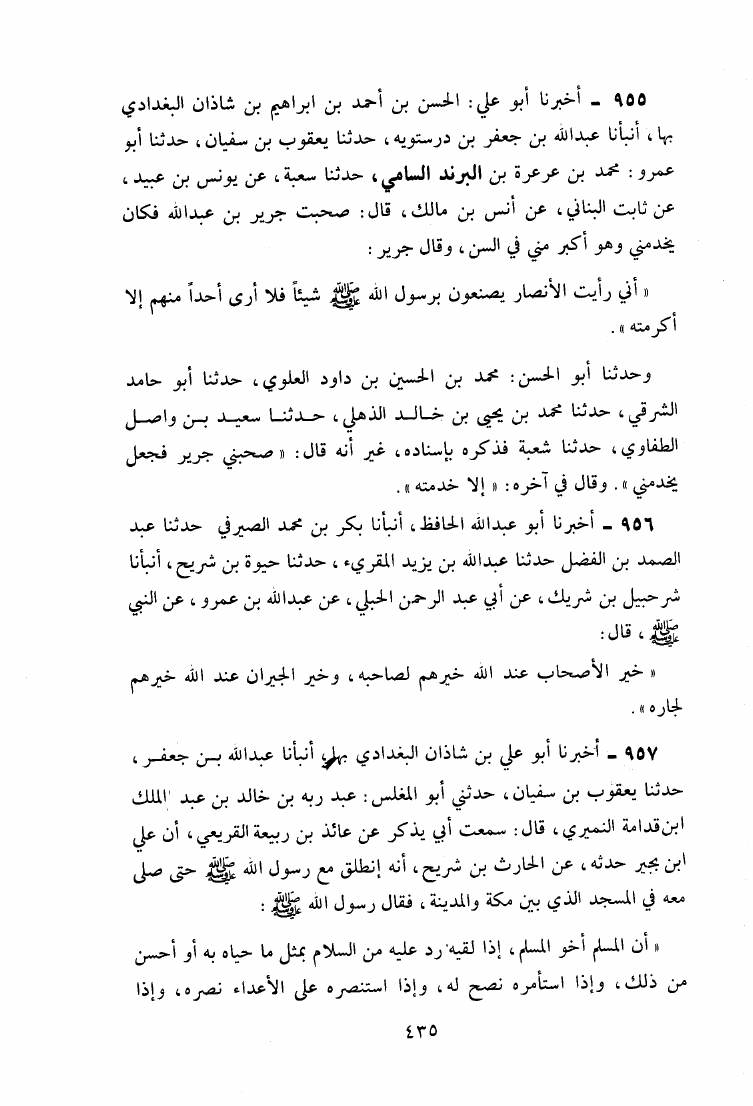 ٩٥٥ ـ أخبرنا أبو علي: الحسن بن أحمد بن ابراهيم بن شاذان البغدادي
بها، أنبأنا عبدالله بن جعفر بن درستويه، حدثنا يعقوب بن سفيان، حدثنا أبو
عمرو: محمد بن عرعرة بن البرند السامي، حدثنا سعبة، عن يونس بن عبيد،
عن ثابت البناني، عن أنس بن مالك، قال: صحبت جرير بن عبدالله فكان
يخدمني وهو أكبر مني في السن، وقال جرير:
« أني رأيت الأنصار يصنعون برسول الله ﷺ شيئاً فلا أرى أحداً منهم إلا
أكرمته ».
وحدثنا أبو الحسن: محمد بن الحسين بن داود العلوي، حدثنا أبو حامد
الشرقي، حدثنا محمد بن يحيى بن خالد الذهلي، حدثنا سعيد بن واصل
الطفاوي، حدثنا شعبة فذكره بإسناده، غير أنه قال: « صحبني جرير فجعل
يخدمني ». وقال في آخره: « إلا خدمته ».
٩٥٦ ـ أخبرنا أبو عبدالله الحافظ، أنبأنا بكر بن محمد الصيرفي حدثنا عبد
الصمد بن الفضل حدثنا عبدالله بن يزيد المقريء، حدثنا حيوة بن شريح، أنبأنا
شرحبيل بن شريك، عن أبي عبد الرحمن الحبلي، عن عبدالله بن عمرو، عن النبي
ﷺ، قال:
« خير الأصحاب عند الله خيرهم لصاحبه، وخير الجيران عند الله خيرهم
لجاره ».
٩٥٧ ـ أخبرنا أبو علي بن شاذان البغدادي بها، أنبأنا عبدالله بن جعفر،
حدثنا يعقوب بن سفيان، حدثني أبو المغلس: عبد ربه بن خالد بن عبد الملك
ابن قدامة النميري، قال: سمعت أبي يذكر عن عائذ بن ربيعة القريعي، أن علي
ابن بجير حدثه، عن الحارث بن شريح، أنه إنطلق مع رسول الله ﷺ حتى صلى
معه في المسجد الذي بين مكة والمدينة، فقال رسول الله ﷺ:
« أن المسلم أخو المسلم، إذا لقيه رد عليه من السلام بمثل ما حياه به أو أحسن
من ذلك، وإذا استأمره نصح له، وإذا استنصره على الأعداء نصره، وإذا
٤٣٥